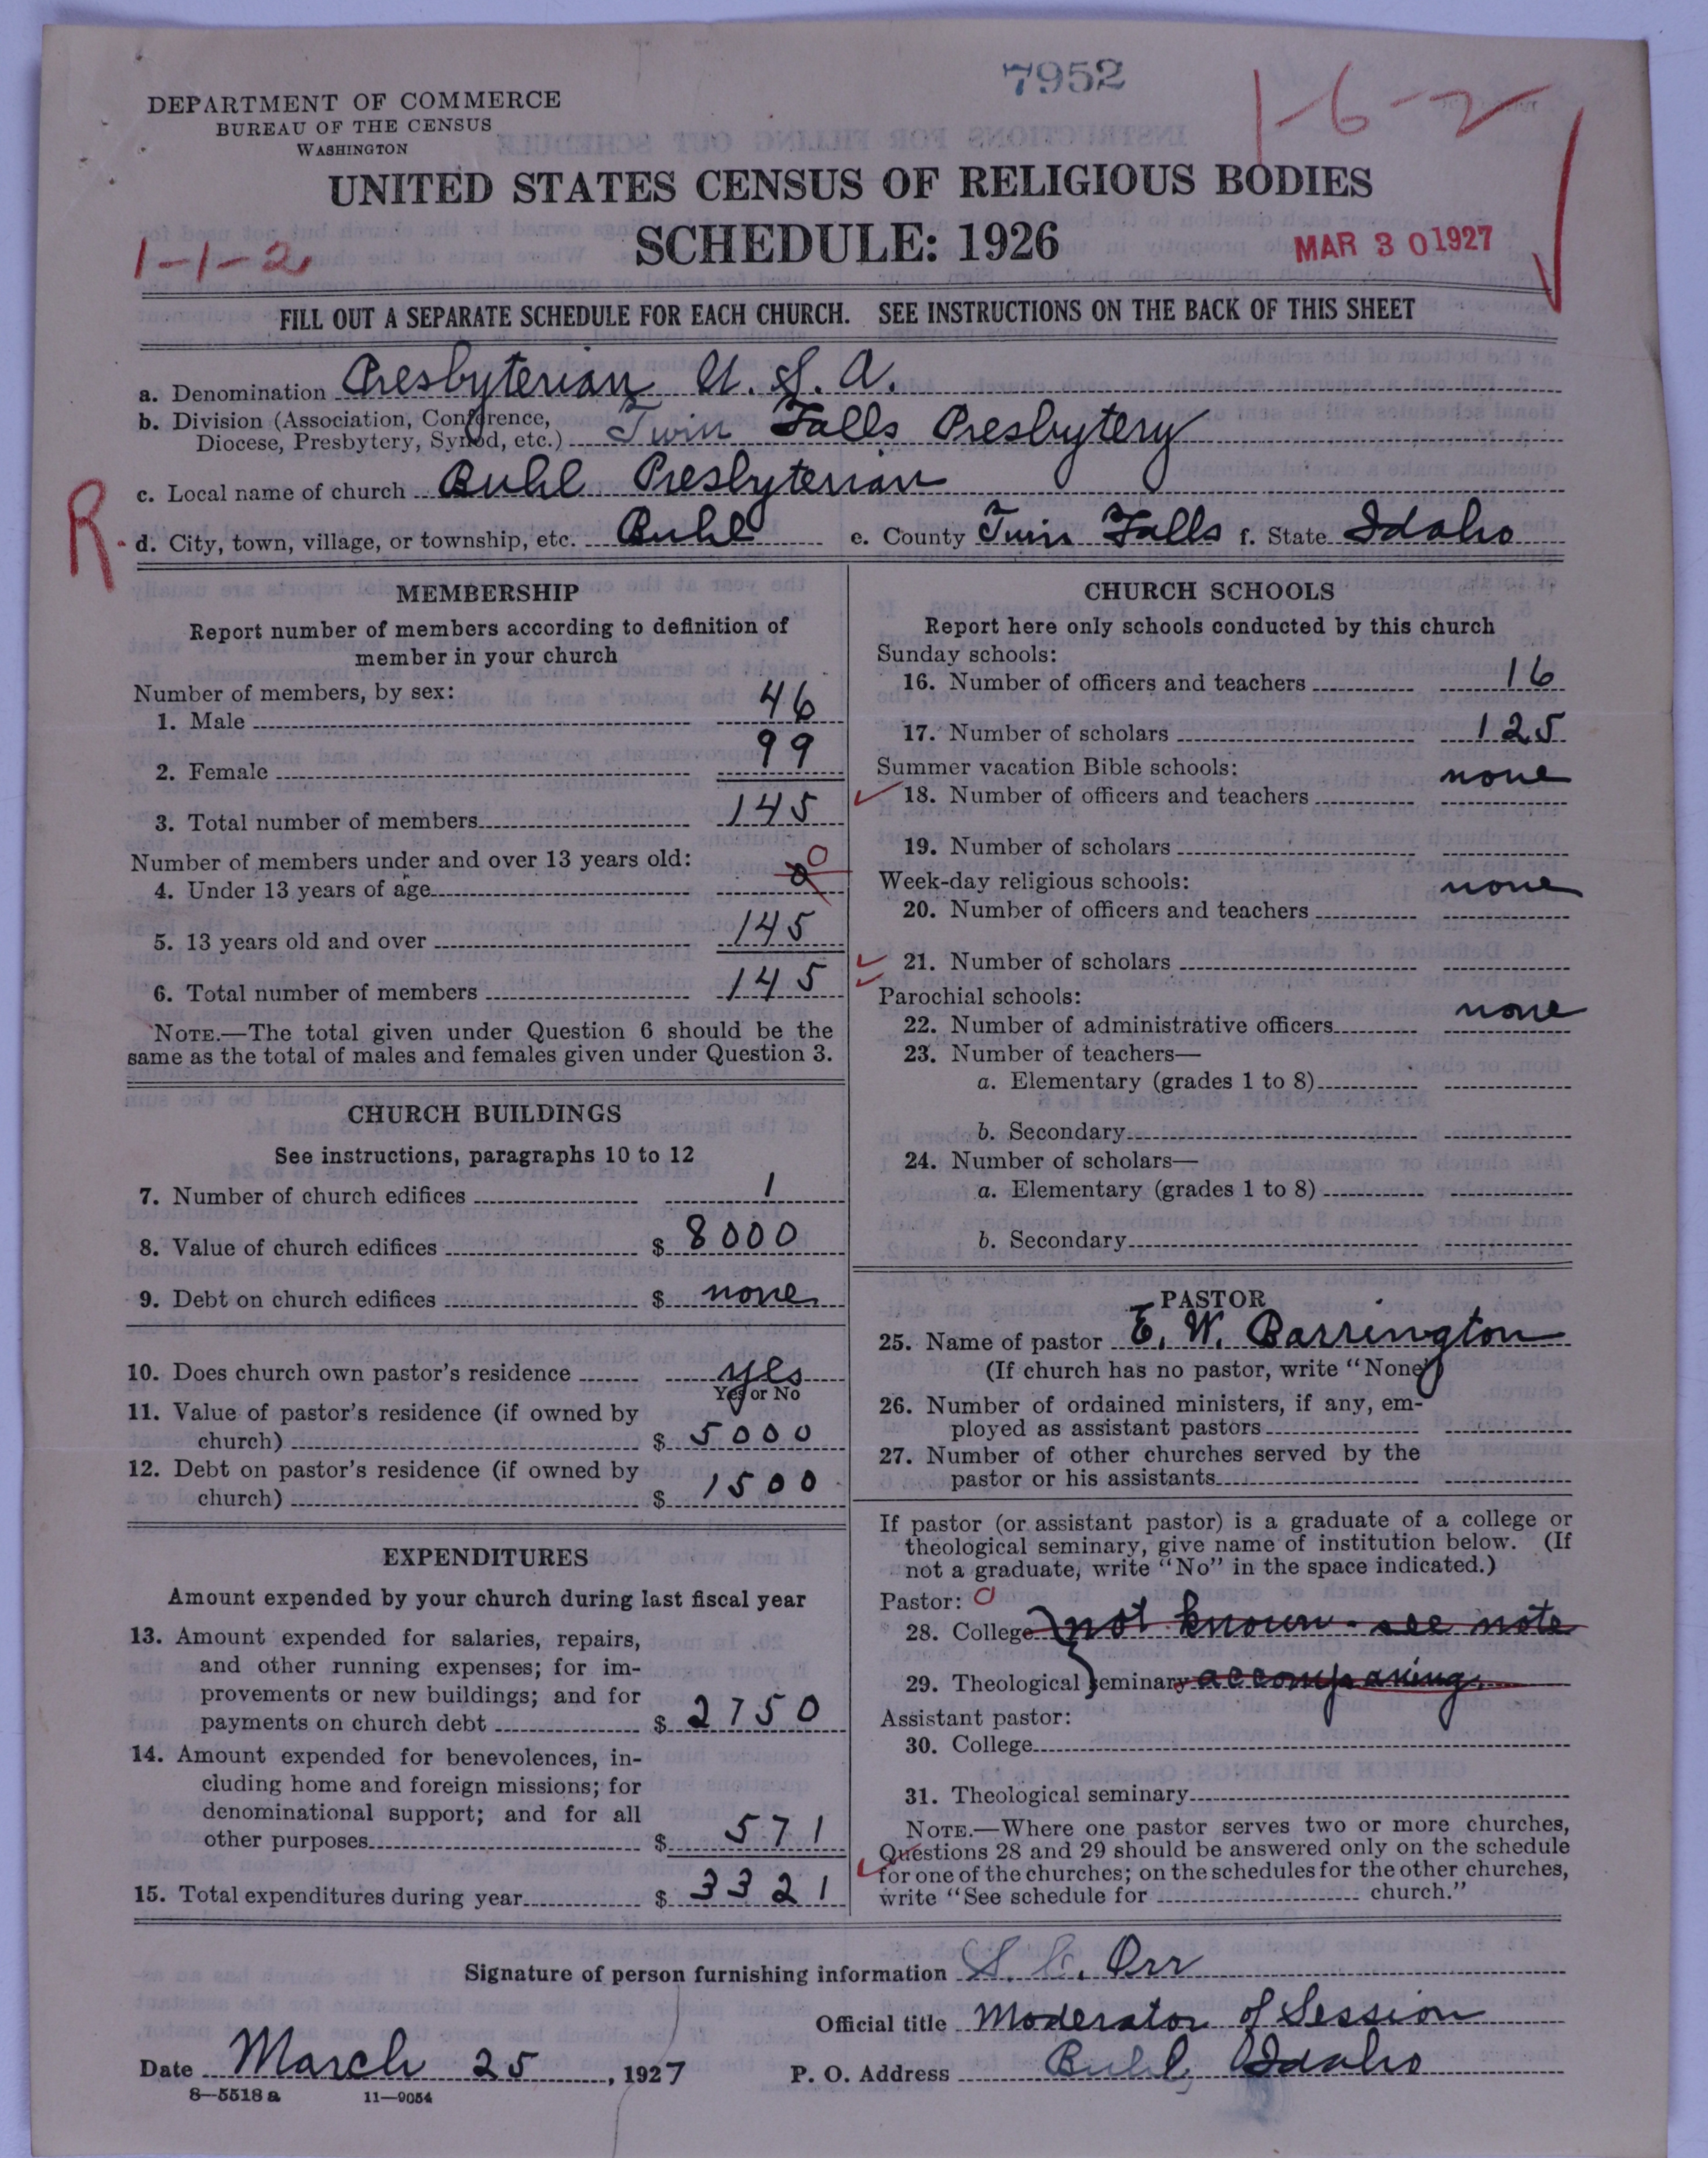 7952
1-6-2
DEPARTMENT OF COMMERCE
BUREAU OF THE CENSUS
WASHINGTON
UNITED STATES CENSUS OF RELIGIOUS BODIES
SCHEDULE: 1926
1-1-2
MAR 30 1927
FILL OUT A SEPARATE SCHEDULE FOR EACH CHURCH. SEE INSTRUCTIONS ON THE BACK OF THIS SHEET
a. Denomination Presbyterian U.S.A.
b. Division (Association, Conference,
Diocese, Presbytery, Synod, etc.) Twin Falls Presbytery
c. Local name of church Buhl Presbyterian
R. d. City, town, village, or township, etc. Buhl e. County Twin Falls f. State Idaho
MEMBERSHIP
Report number of members according to definition of
member in your church
Number of members, by sex:
1. Male 46
2. Female 99
3. Total number of members 145
Number of members under and over 13 years old:
4. Under 13 years of age 0
5. 13 years old and over 145
6. Total number of members 145
NOTE.—The total given under Question 6 should be the
same as the total of males and females given under Question 3.
CHURCH BUILDINGS
See instructions, paragraphs 10 to 12
7. Number of church edifices 1
8. Value of church edifices $ 8000
9. Debt on church edifices $ none
10. Does church own pastor's residence yes
Yes or No
11. Value of pastor's residence (if owned by
church) $ 5000
12. Debt on pastor's residence (if owned by
church) $ 1500
EXPENDITURES
Amount expended by your church during last fiscal year
13. Amount expended for salaries, repairs,
and other running expenses; for im-
provements or new buildings; and for
payments on church debt $ 2750
14. Amount expended for benevolences, in-
cluding home and foreign missions; for
denominational support; and for all
other purposes $ 571
15. Total expenditures during year $ 3321
CHURCH SCHOOLS
Report here only schools conducted by this church
Sunday schools:
16. Number of officers and teachers 16
17. Number of scholars 125
Summer vacation Bible schools:
18. Number of officers and teachers none
19. Number of scholars
Week-day religious schools:
20. Number of officers and teachers none
21. Number of scholars
Parochial schools:
22. Number of administrative officers none
23. Number of teachers—
a. Elementary (grades 1 to 8)
b. Secondary
24. Number of scholars—
a. Elementary (grades 1 to 8)
b. Secondary
PASTOR
25. Name of pastor E. W. Barrington
(If church has no pastor, write "None")
26. Number of ordained ministers, if any, em-
ployed as assistant pastors
27. Number of other churches served by the
pastor or his assistants
If pastor (or assistant pastor) is a graduate of a college or
theological seminary, give name of institution below. (If
not a graduate, write "No" in the space indicated.)
Pastor: 0
28. College not known - see note
29. Theological seminary accompaning.
Assistant pastor:
30. College
31. Theological seminary
NOTE.—Where one pastor serves two or more churches,
Questions 28 and 29 should be answered only on the schedule
for one of the churches; on the schedules for the other churches,
write "See schedule for church."
Signature of person furnishing information S. C. Orr
Official title Moderator of Session
Date March 25, 1927 P. O. Address Buhl, Idaho
8—5518 a 11—9054